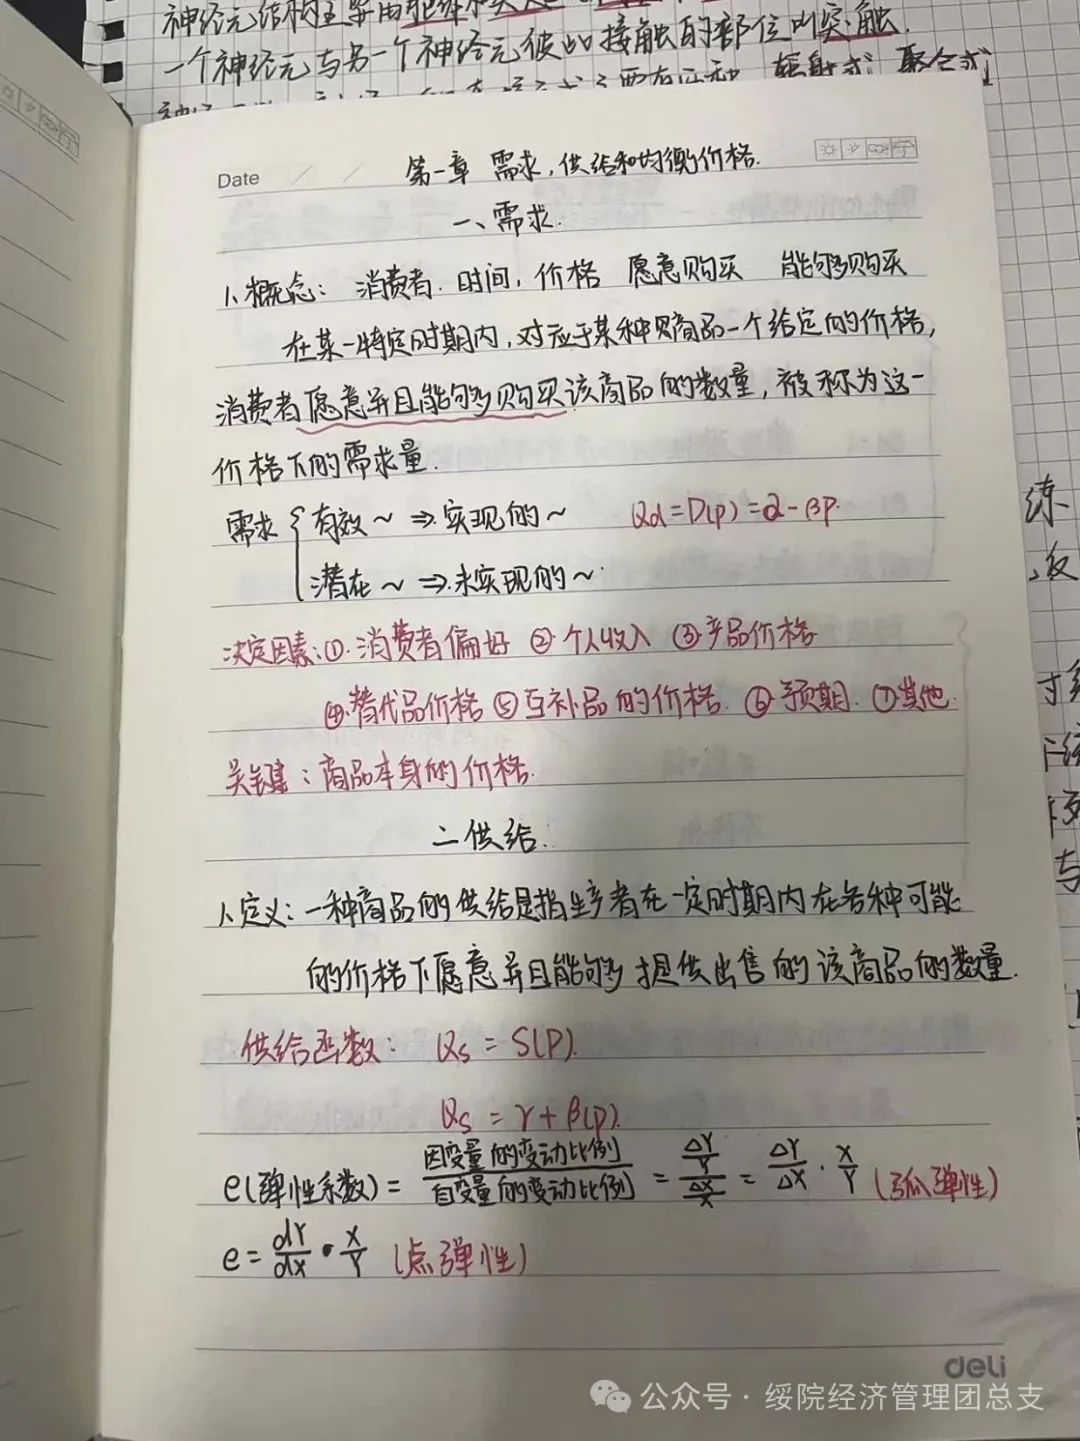 神经元结构主要由
一个神经元与另一个神经元彼此接触的部位叫突触.
辐射式 聚合式
Date / / 第一章 需求,供给和均衡价格.
一、需求.
1、概念: 消费者. 时间, 价格 愿意购买 能够购买
在某一特定时期内,对应于某种商品一个给定的价格,
消费者愿意并且能够购买该商品的数量,被称为这一
价格下的需求量.
需求 { 有效~ ⇒ 实现的~ Qd=D(P)=α-βP.
潜在~ ⇒ 未实现的~.
决定因素:①.消费者偏好 ②.个人收入 ③产品价格
④.替代品价格 ⑤互补品的价格. ⑥.预期. ⑦其他.
关键:商品本身的价格.
二 供给.
1、定义:一种商品的供给是指生产者在一定时期内在各种可能
的价格下愿意并且能够提供出售的该商品的数量.
供给函数: Qs = S(P).
Qs = γ+β(P).
e(弹性系数)= 因变量的变动比例/自变量的变动比例 = (ΔY/Y)/(ΔX/X) = ΔY/ΔX · X/Y (弧弹性)
e = dY/dX · X/Y (点弹性)
练
反
与
deli
公众号·绥院经济管理团总支